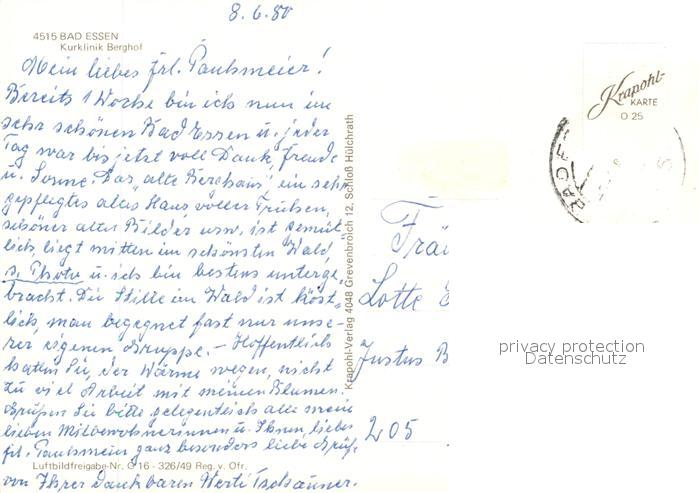 8.6.80
4515 BAD ESSEN
Kurklinik Berghof
Mein liebes Frl. Paulsmeier!
Bereits 1 Woche bin ich nun im
sehr schönen Bad Essen u. jeder
Tag war bis jetzt voll Dank, Freude
u. Sonne. Das "alte Berghaus", ein sehr
gepflegtes altes Haus voller Truhen,
schöner alter Bilder usw. ist gemüt-
lich, liegt mitten im schönsten Wald,
s. Photo u. ich bin bestens unterge-
bracht. Die Stille im Wald ist köst-
lich, man begegnet fast nur unse-
rer eigenen Gruppe. - Hoffentlich
hatten Sie, der Wärme wegen, nicht
zu viel Arbeit mit meinen Blumen.
Grüßen Sie bitte gelegentlich alle meine
lieben Mitbewohnerinnen u. Ihnen, liebes
Frl. Paulsmeier ganz besonders liebe Grüße
Luftbildfreigabe-Nr. G 16 - 326/49 Reg. v. Ofr.
von Ihrer dankbaren
Krapohl-Verlag 4048 Grevenbroich 12, Schloß Hülchrath
Krapohl-
KARTE
O 25
BAD E
Frä
Lotte
Justus B
205
privacy protection
Datenschutz